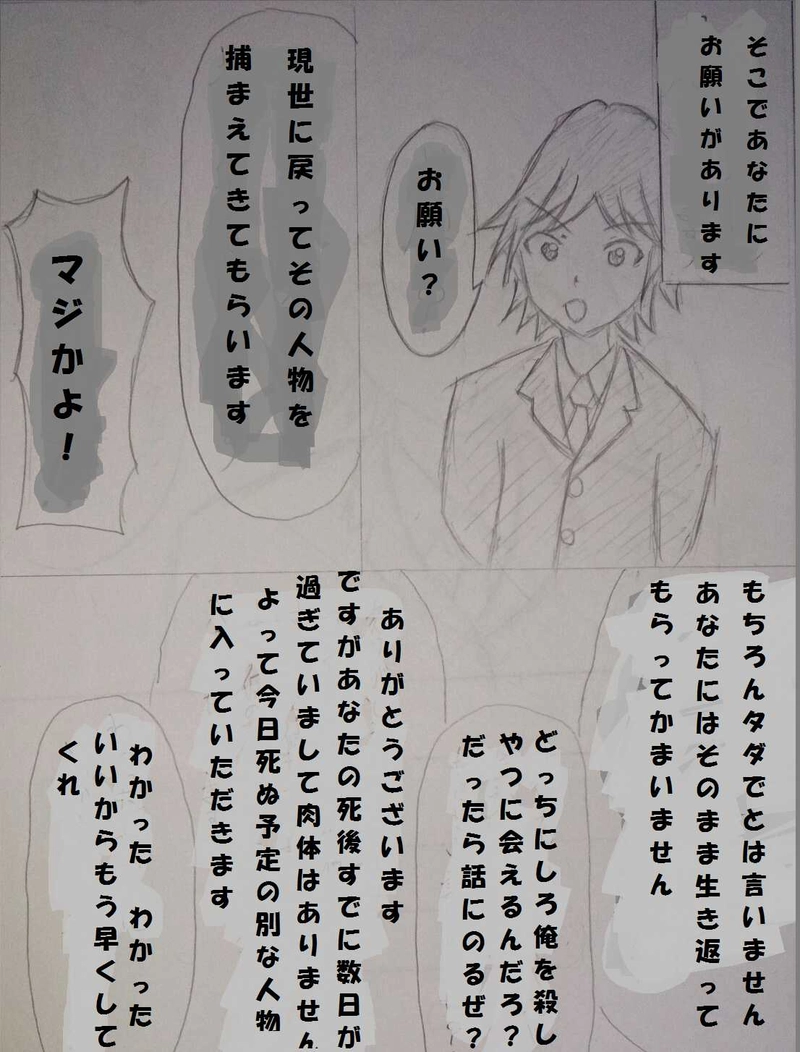 そこであなたに
お願いがあります
お願い?
現世に戻ってその人物を
捕まえてきてもらいます
マジかよ!
もちろんタダでとは言いません
あなたにはそのまま生き返って
もらってかまいません
どっちにしろ俺を殺し
やつに会えるんだろ?
だったら話にのるぜ?
ありがとうございます
ですがあなたの死後すでに数日が
過ぎていまして肉体はありません
よって今日死ぬ予定の別な人物
に入っていただきます
わかった わかった
いいからもう早くして
くれ